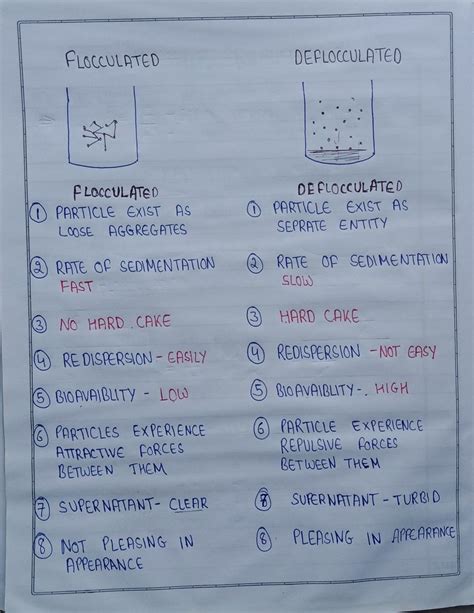 FLOCCULATED
DEFLOCCULATED
FLOCCULATED
① PARTICLE EXIST AS
LOOSE AGGREGATES
② RATE OF SEDIMENTATION
FAST
③ NO HARD CAKE
④ REDISPERSION - EASILY
⑤ BIOAVAIBLITY - LOW
⑥ PARTICLES EXPERIENCE
ATTRACTIVE FORCES
BETWEEN THEM
⑦ SUPERNATANT- CLEAR
⑧ NOT PLEASING IN
APPEARANCE
DEFLOCCULATED
① PARTICLE EXIST AS
SEPRATE ENTITY
② RATE OF SEDIMENTATION
SLOW
③ HARD CAKE
④ REDISPERSION - NOT EASY
⑤ BIOAVAIBLITY-. HIGH
⑥ PARTICLE EXPERIENCE
REPULSIVE FORCES
BETWEEN THEM
⑧ SUPERNATANT - TURBID
⑧ PLEASING IN APPEARANCE